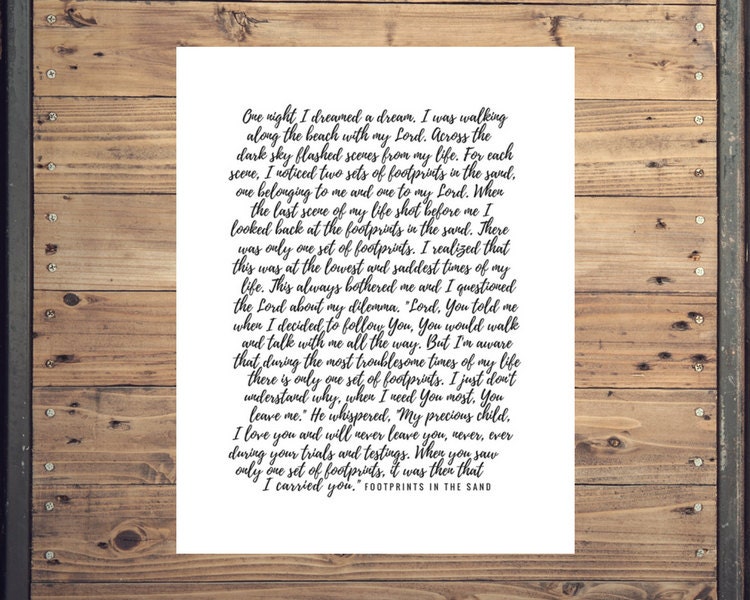 One night I dreamed a dream. I was walking
along the beach with my Lord. Across the
dark sky flashed scenes from my life. For each
scene, I noticed two sets of footprints in the sand,
one belonging to me and one to my Lord. When
the last scene of my life shot before me I
looked back at the footprints in the sand. There
was only one set of footprints. I realized that
this was at the lowest and saddest times of my
life. This always bothered me and I questioned
the Lord about my dilemma. "Lord, You told me
when I decided to follow You, You would walk
and talk with me all the way. But I'm aware
that during the most troublesome times of my life
there is only one set of footprints. I just don't
understand why, when I need You most, You
leave me." He whispered, "My precious child,
I love you and will never leave you, never, ever
during your trials and testings. When you saw
only one set of footprints, it was then that
I carried you." FOOTPRINTS IN THE SAND